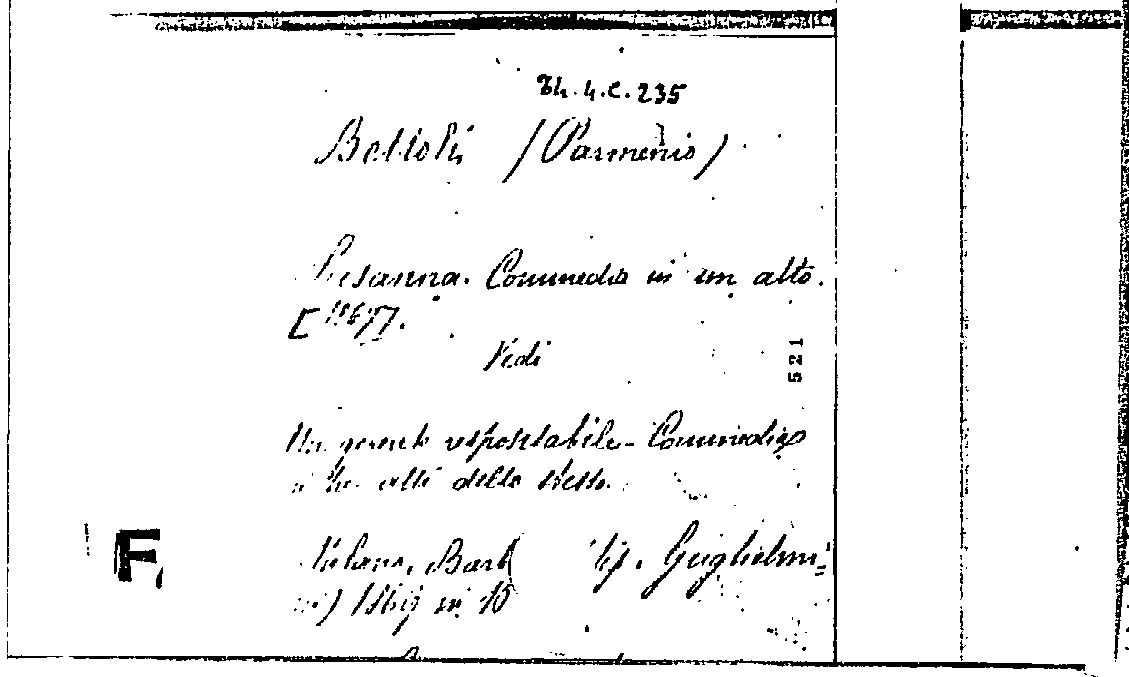 Th. 4. C. 235
Bettoli (Parmenio)
Susanna. Commedia in un atto.
[1867].
Vedi
521
Un gerente responsabile - Commedia
in tre atti dello stesso.
Milano, Barb (tip. Guglielmi=
ni) 1869 in 16
F.